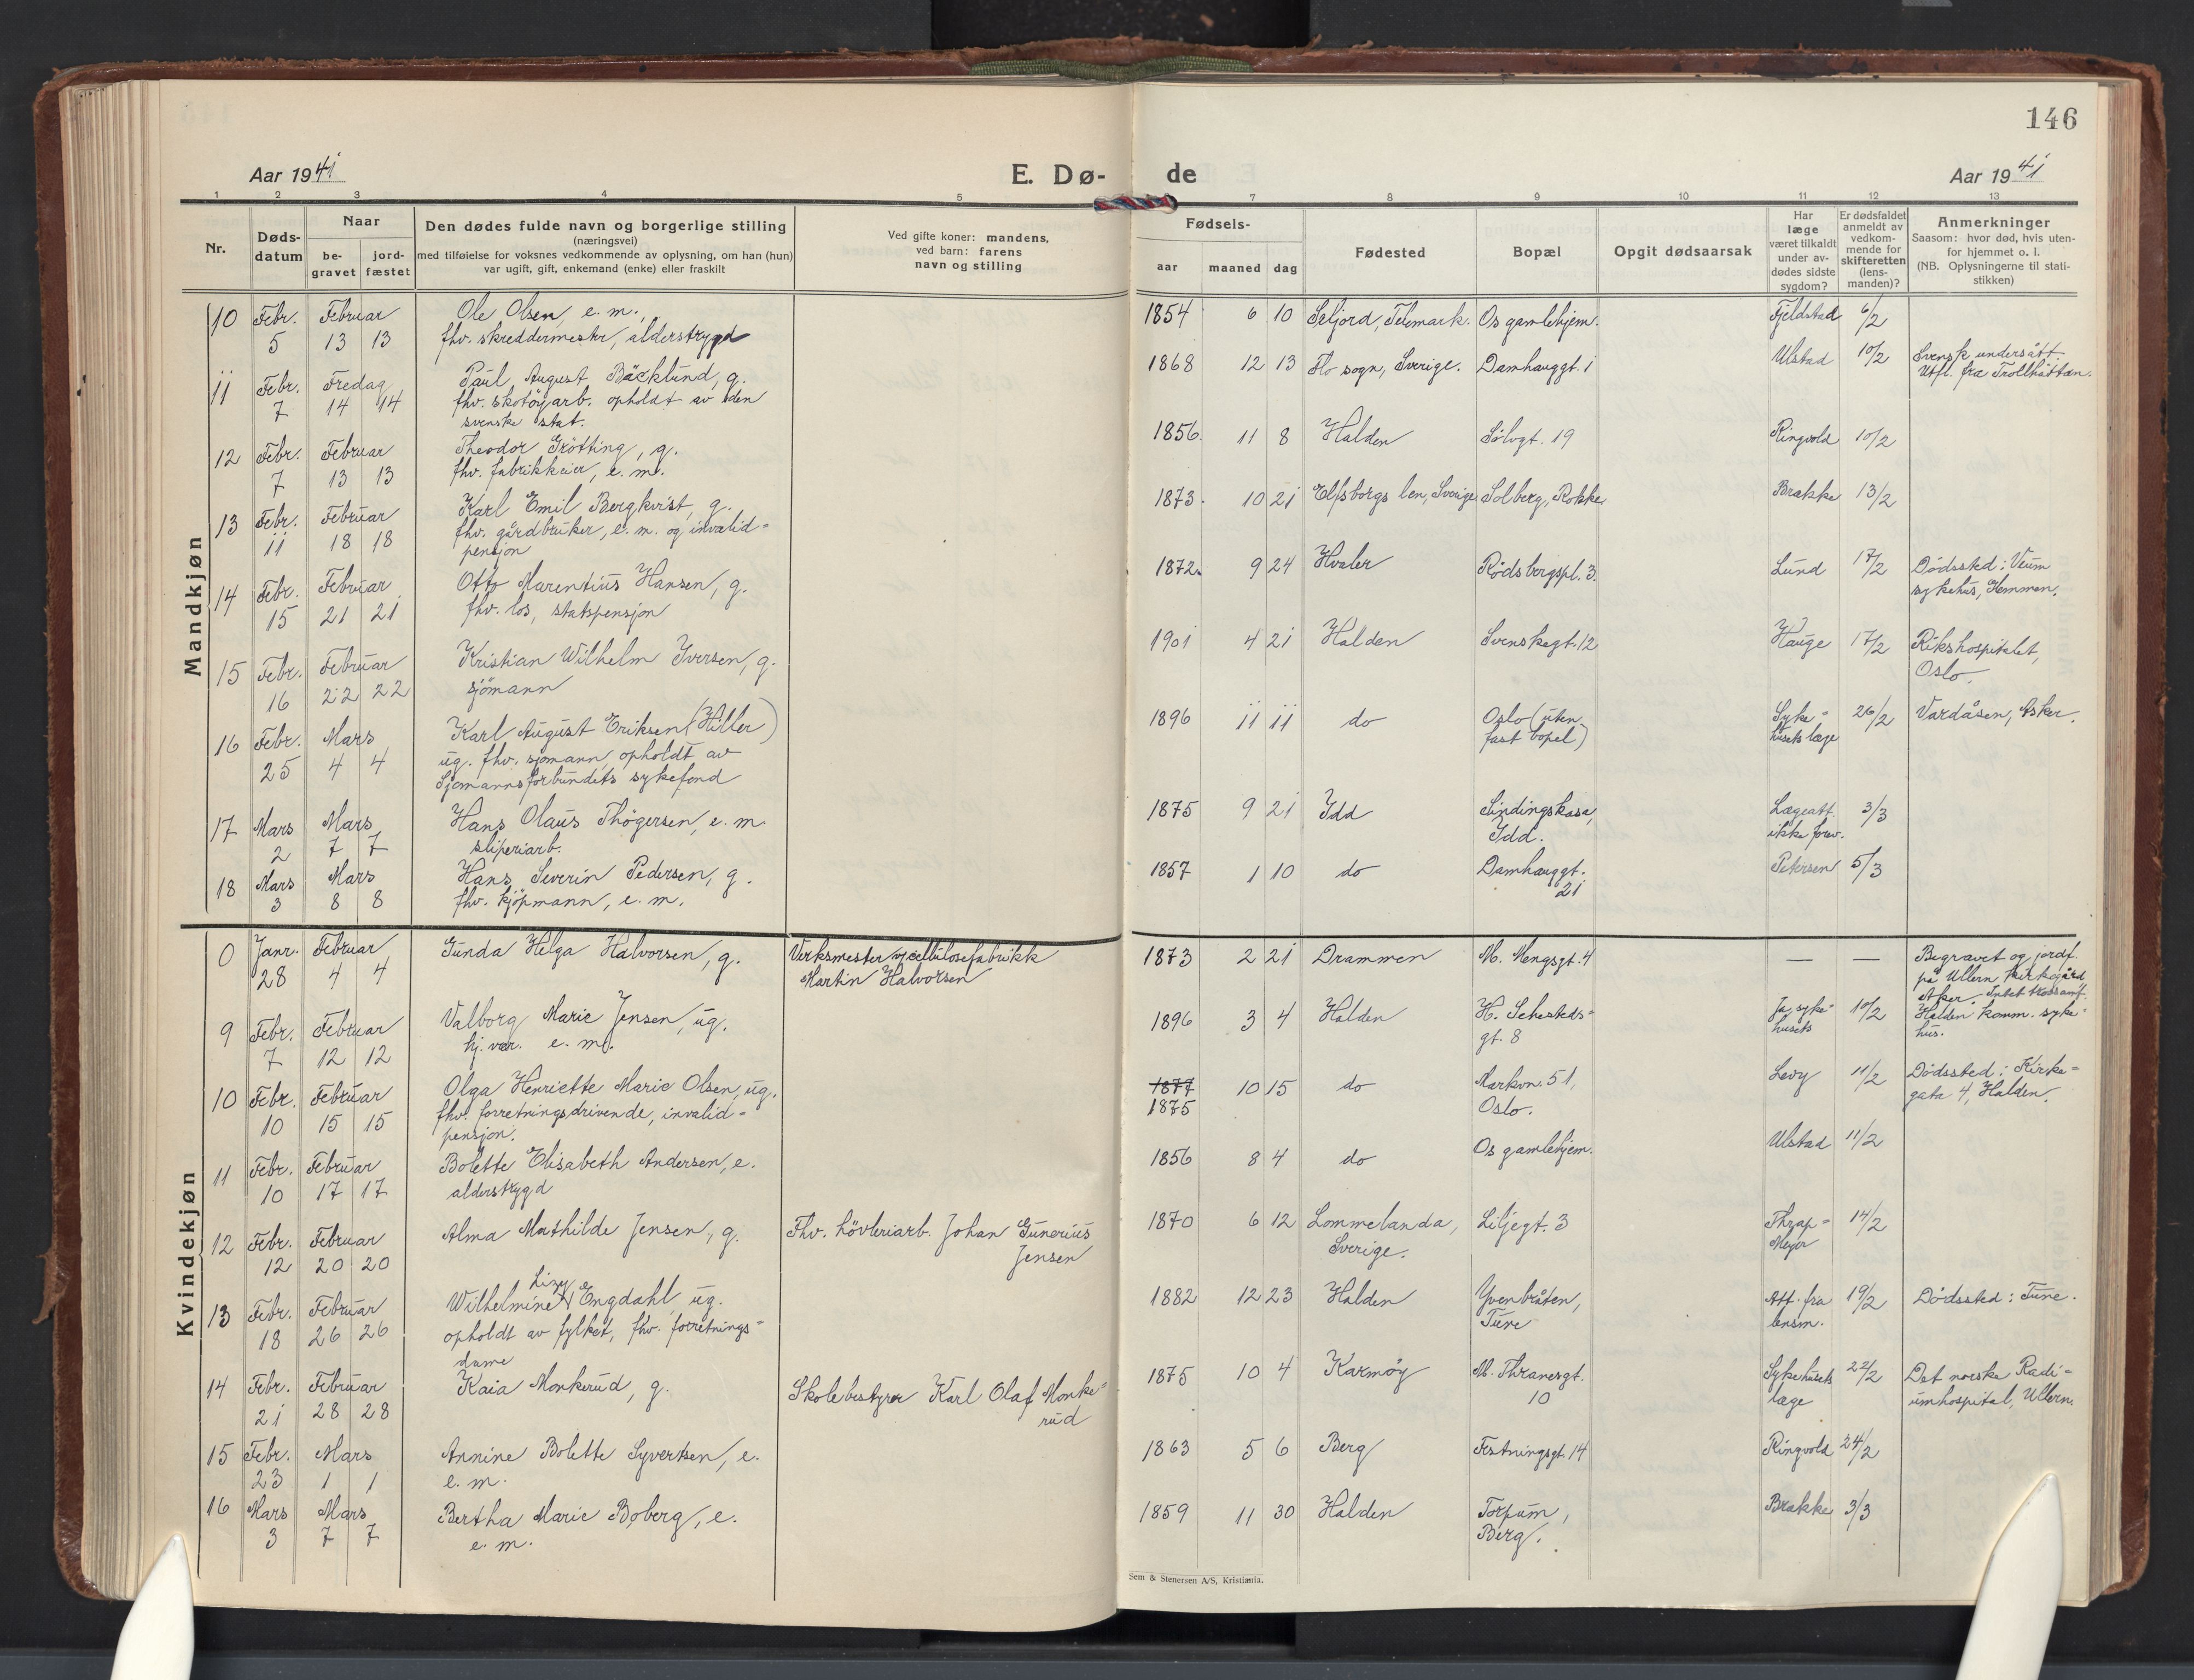 146
Aar 1941
E. Dø-
de
Aar 1941
1 2 3 4 5
7 8 9 10 11 12 13
Nr.
Døds-
datum
Naar
be-
gravet
jord-
fæstet
Den dødes fulde navn og borgerlige stilling
(næringsvei)
med tilføielse for voksnes vedkommende av oplysning, om han (hun)
var ugift, gift, enkemand (enke) eller fraskilt
Ved gifte koner: mandens,
ved barn: farens
navn og stilling
Fødsels-
aar maaned dag
Fødested
Bopæl
Opgit dødsaarsak
Har
læge
været tilkaldt
under av-
dødes sidste
sygdom?
Er dødsfaldet
anmeldt av
vedkom-
mende for
skifteretten
(lens-
manden)?
Anmerkninger
Saasom: hvor død, hvis uten-
for hjemmet o. l.
(NB. Oplysningerne til stati-
stikken)
Mandkjøn
10 Febr. Februar Ole Olsen, e. m., 1854 6 10 Seljord, Telemark. Os gamlehjem. Fjeldstad 6/2
5 13 13 fhv. skreddermester, alderstrygd
11 Febr. Fredag Paul August Bäcklund, g. 1868 12 13 Flo sogn, Sverige. Damhauggt. 1 Ulstad 10/2 Svensk undersått.
7 14 14 fhv. skotøyarb. opholdt av den Utfl. fra Trollhättan.
svenske stat.
12 Febr. Februar Theodor Grötting, g. 1856 11 8 Halden Sölvgt. 19 Ringvold 10/2
7 13 13 fhv. fabrikkeier, e. m.
13 Febr. Februar Karl Emil Bergkvist, g. 1873. 10 21 Elfsborgs len, Sverige Solberg, Rokke Brække 13/2
11 18 18 fhv. gårdbruker, e. m. og invalid=
pensjon
14 Febr. Februar Otto Marentius Hansen, g. 1872. 9 24 Hvaler Rødsbergspl. 3. Lund 17/2 Dödssted: Veum
15 21 21 fhv. los, statspensjon sykehus, Glemmen.
15 Febr. Februar Kristian Wilhelm Iversen, g. 1901 4 21 Halden Svenskegt. 12 Hauge 17/2 Rikshospitalet,
16 22 22 sjömann Oslo.
16 Febr. Mars Karl August Eriksen (Hiller) 1896 11 11 do Oslo (uten Syke= 26/2 Vardåsen, Asker.
25 4 4 ug. fhv. sjömann, opholdt av fast bopel) husets læge
Sjømannsforbundets sykefond
17 Mars Mars Hans Olaus Thögersen, e. m. 1875 9 21 Idd Sindingskasa, Lægeatt. 3/3
2 7 7 sliperiarb. Idd. ikke forev.
18 Mars Mars Hans Severin Pedersen, g. 1857 1 10 do Damhauggt. Petersen 5/3
3 8 8 fhv. kjöpmann, e. m. 21
Kvindekjøn
0 Janr. Februar Gunda Helga Halvorsen, g. Verksmester v/ cellulosefabrikk 1873 2 21 Drammen M. Mengsgt. 4 — — Begravet og jordf.
28 4 4 Martin Halvorsen på Ullern kirkegård
Aker. Intet
9 Febr. Februar Valborg Marie Jensen, ug. 1896 3 4 Halden H. Sehesteds= Ja, syke= 10/2 Halden komm. syke=
7 12 12 hj.vær. e. m. gt. 8 husets hus.
10 Febr. Februar Olga Henriette Marie Olsen, ug. 1877 10 15 do Markvn. 51, Levy 11/2 Dödssted: Kirke=
10 15 15 fhv. forretningsdrivende, invalid= 1875 Oslo. gata 4, Halden.
pensjon.
11 Febr. Februar Bolette Elisabeth Andersen, e. 1856 8 4 do Os gamlehjem. Ulstad 11/2
10 17 17 alderstrygd
12 Febr. Februar Alma Mathilde Jensen, g. Fhv. hövleriarb. Johan Gunerius 1870 6 12 Lommelanda, Liljegt. 3 Thrap= 14/2
12 20 20 Jensen Sverige. Meyer
13 Febr. Februar Wilhelmine Lizzy Engdahl, ug. 1882 12 23 Halden Yvenbråten, Att. fra 19/2 Dödssted: Tune.
18 26 26 opholdt av fylket, fhv. forretnings= Tune lensm.
dame
14 Febr. Februar Kaia Monkerud, g. Skolebestyrer Karl Olaf Monke= 1875 10 4 Karmöy M. Thranesgt. Sykehusets 22/2 Det norske Radi=
21 28 28 rud 10 læge umhospital, Ullern.
15 Febr. Mars Annine Bolette Syvertsen, e. 1863 5 6 Berg Festningsgt. 14 Ringvold 24/2
23 1 1 e. m.
16 Mars Mars Bertha Marie Boberg, e. 1859 11 30 Halden Torpum, Brække 3/3
3 7 7 e. m. Berg.
Sem & Stenersen A/S, Kristiania.